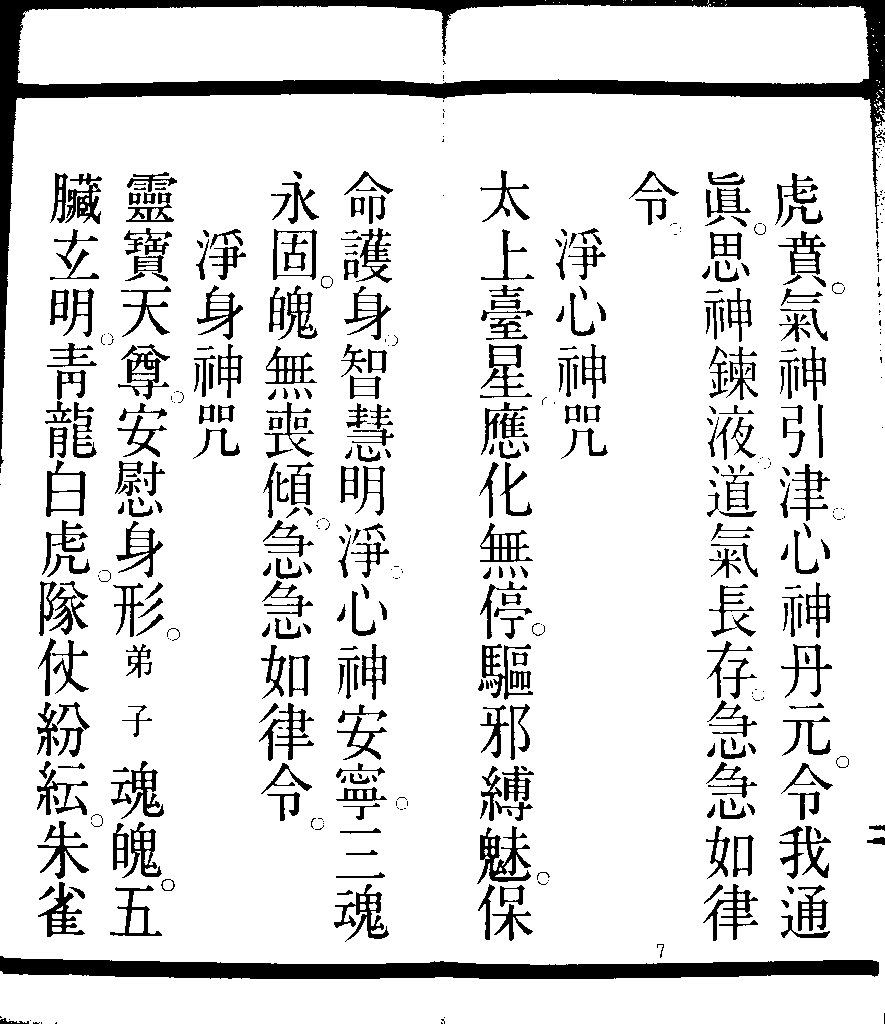 虎賁。氣神引津。心神丹元。令我通
眞。思神鍊液。道氣長存。急急如律
令。
淨心神咒
太上臺星。應化無停。驅邪縛魅。保
命護身。智慧明淨。心神安寧。三魂
永固。魄無喪傾。急急如律令。
淨身神咒
靈寶天尊。安慰身形。弟子魂魄。五
臟玄明。青龍白虎。隊仗紛紜。朱雀
二
7